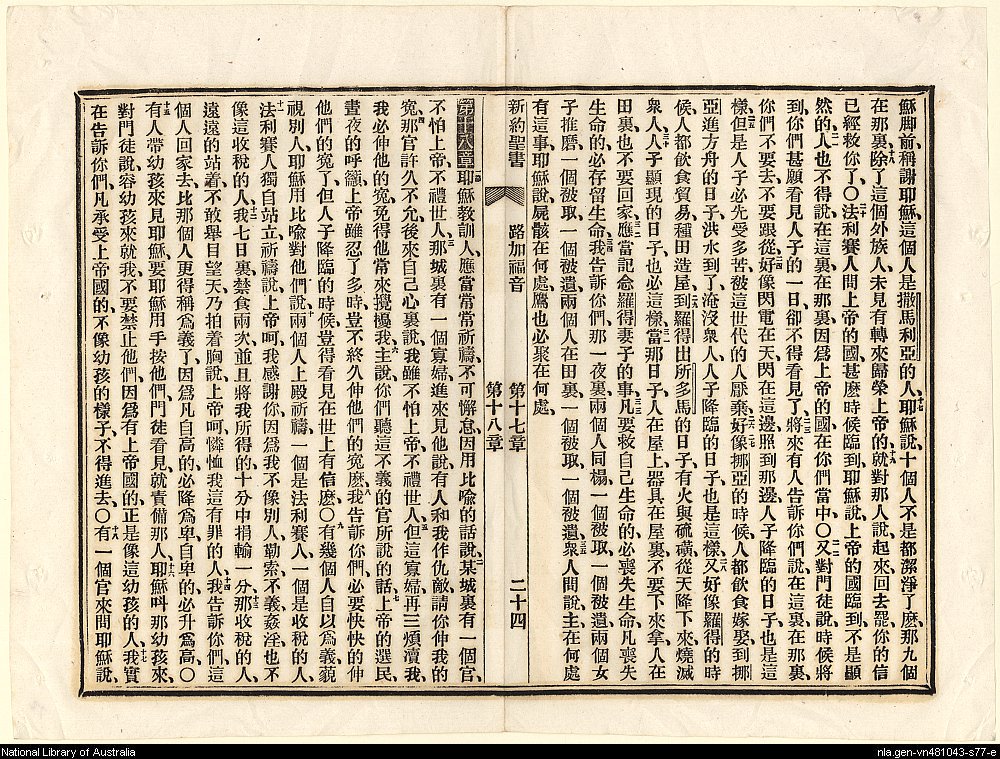 穌脚前稱謝耶穌這個人是撒馬利亞的人耶穌說十個人不是都潔淨了麽那九個
在那裏除了這個外族人未見有轉來歸榮上帝的就對那人說起來回去罷你的信
已經救你了〇法利賽人問上帝的國甚麽時候臨到耶穌說上帝的國臨到不是顯
然的人也不得說在這裏在那裏因爲上帝的國在你們當中〇又對門徒說時候將
到你們甚願看見人子的一日卻不得看見了將來有人告訴你們說在這裏在那裏
你們不要去不要跟從好像閃電在天閃在這邊照到那邊人子降臨的日子也是這
樣但是人子必先受多苦被這世代的人厭棄好像挪亞的時候人都飲食嫁娶到挪
亞進方舟的日子洪水到了淹沒衆人人子降臨的日子也是這樣又好像羅得的時
候人都飲食貿易種田造屋到羅得出所多馬的日子有火與硫磺從天降下來燒滅
衆人人子顯現的日子也必這樣當那日子人在屋上器具在屋裏不要下來拿人在
田裏也不要回家應當記念羅得妻子的事凡要救自己生命的必喪失生命凡喪失
生命的必存留生命我告訴你們那一夜裏兩個人同榻一個被取一個被遺兩個女
子推磨一個被取一個被遺兩個人在田裏一個被取一個被遺衆人問說主在何處
有這事耶穌說屍骸在何處鷹也必聚在何處
新約聖書 路加福音 第十七章 第十八章 二十四
第十八章耶穌敎訓人應當常常祈禱不可懈怠因用比喩的話說某城裏有一個官
不怕上帝不禮世人那城裏有一個寡婦進來見他說有人和我作仇敵請你伸我的
寃那官許久不允後來自己心裏說我雖不怕上帝不禮世人但這寡婦再三煩瀆我
我必伸他的寃免得他常來攪擾我主說你們聽這不義的官所說的話上帝的選民
晝夜的呼籲上帝雖忍了多時豈不終久伸他們的寃麽我告訴你們必要快快的伸
他們的寃了但人子降臨的時候豈得看見在世上有信麽〇有幾個人自以爲義藐
視別人耶穌用比喩對他們說兩個人上殿祈禱一個是法利賽人一個是收稅的人
法利賽人獨自站立祈禱說上帝呵我感謝你因爲我不像別人勒索不義姦淫也不
像這收稅的人我七日裏禁食兩次並且將我所得的十分中捐輸一分那收稅的人
遠遠的站着不敢舉目望天乃拍着胸說上帝呵憐恤我這有罪的人我告訴你們這
個人回家去比那個人更得稱爲義了因爲凡自高的必降爲卑自卑的必升爲高〇
有人帶幼孩來見耶穌要耶穌用手按他們門徒看見就責備那人耶穌呌那幼孩來
對門徒說容幼孩來就我不要禁止他們因爲有上帝國的正是像這幼孩的人我實
在告訴你們凡承受上帝國的不像幼孩的樣子不得進去〇有一個官來問耶穌說
National Library of Australia
nla.gen-vn481043-s77-e